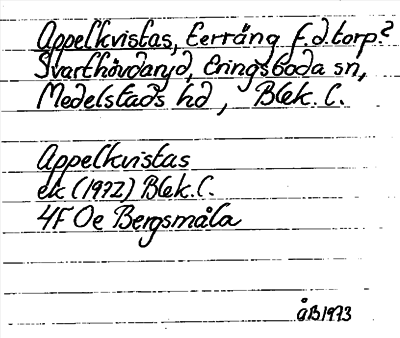 Appelkvistas, terräng f.d. torp?
Svarthövdaryd, Eringsboda sn,
Medelstads hd, Blek. l.
Appelkvistas
ek (1972) Blek. l.
4F 0e Bergsmåla
åB1973